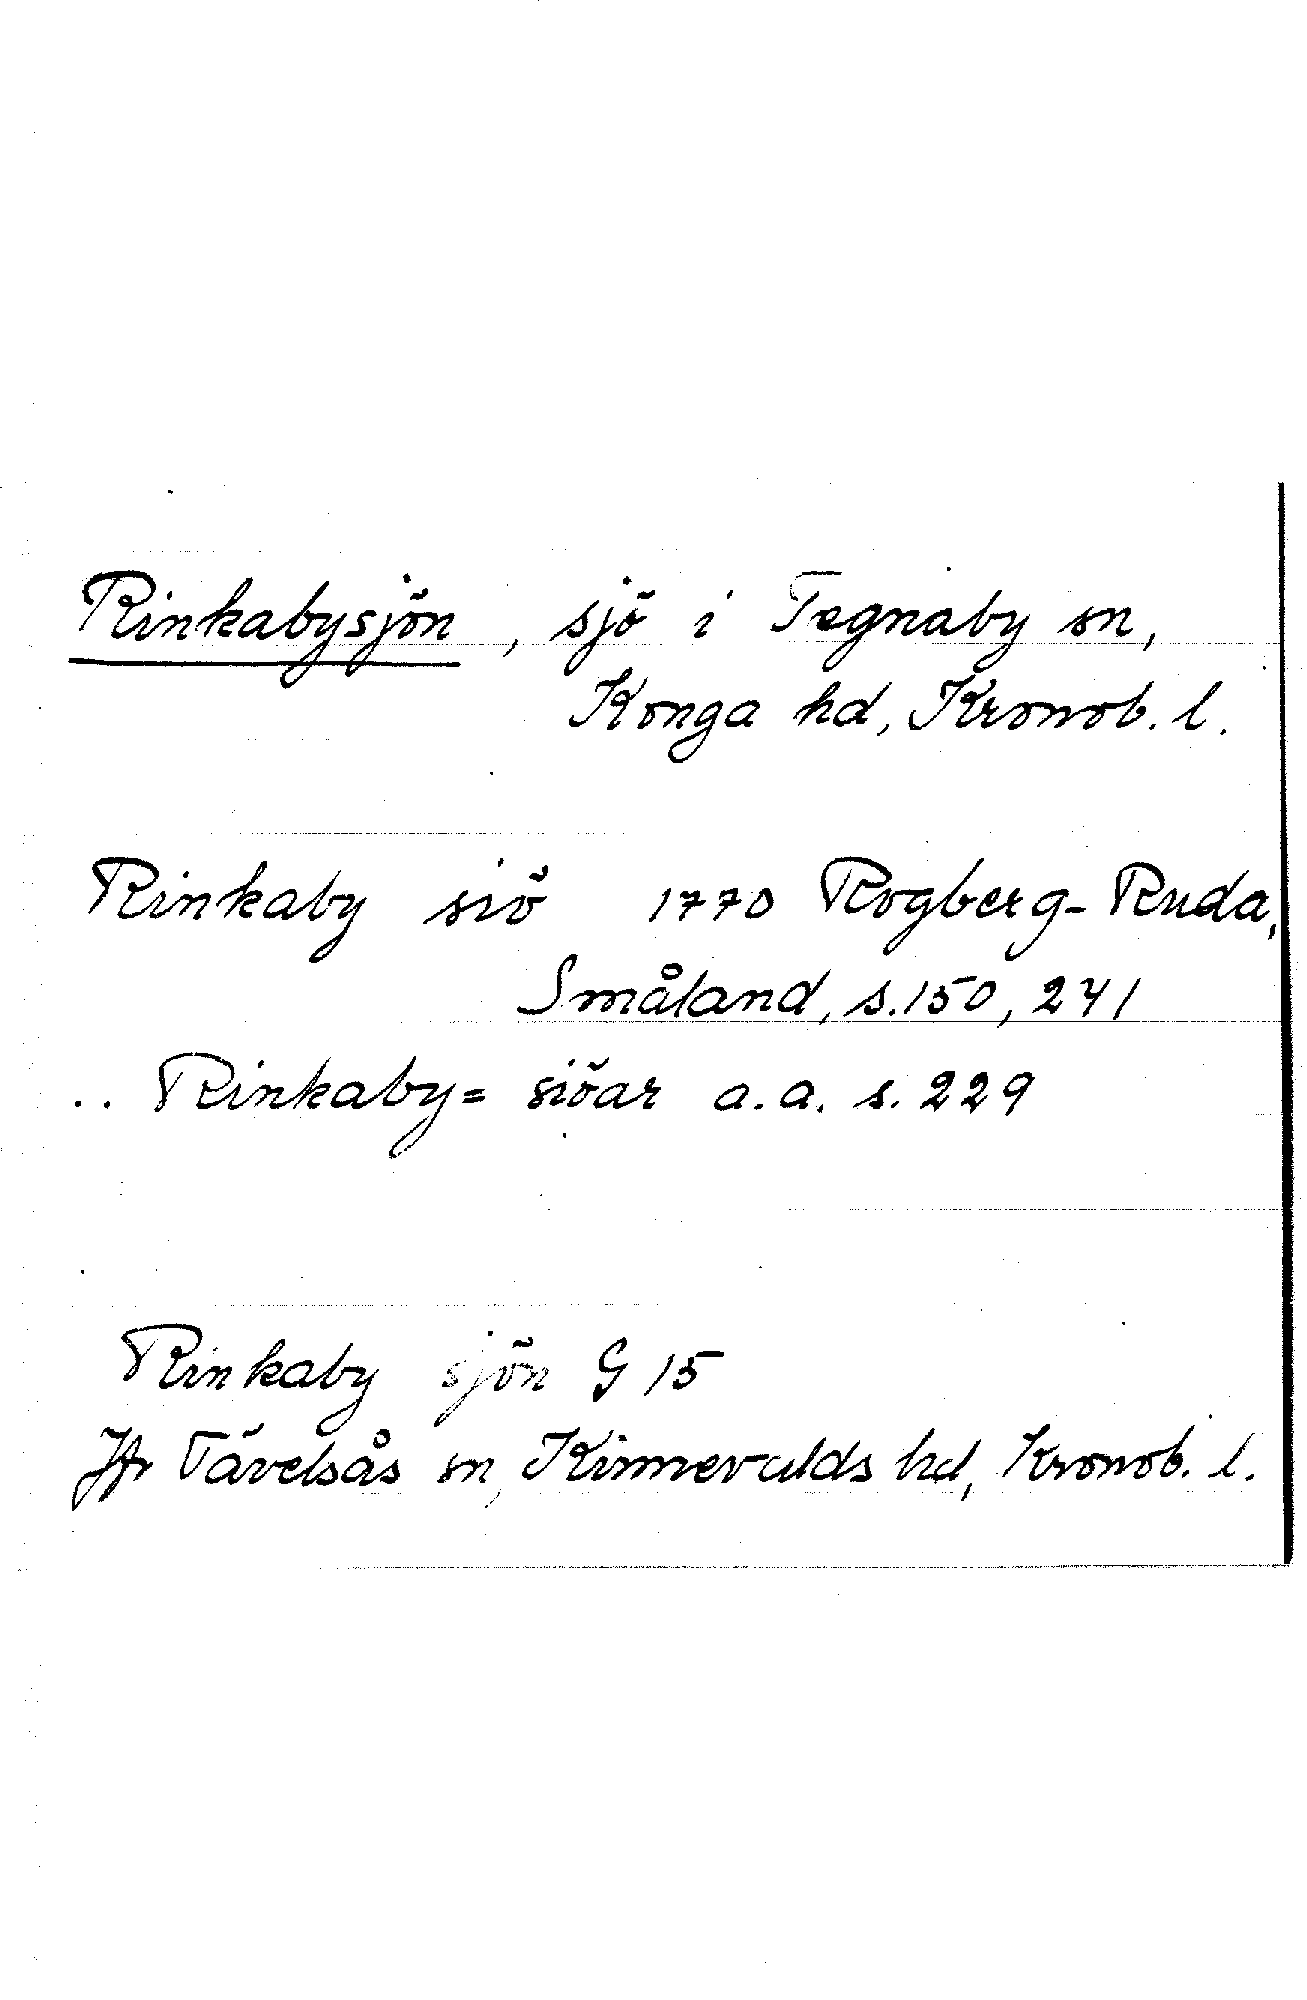 Rinkabysjön, sjö i Tegnaby sn,
Konga hd, Kronob. l.
Rinkaby siö 1770 Rogberg-Ruda,
Småland, s. 150, 241
.. Rinkaby= siöar a.a. s. 229
Rinkaby sjön G 15
Jfr Tävelsås sn, Kinnevalds hd, Kronob. l.